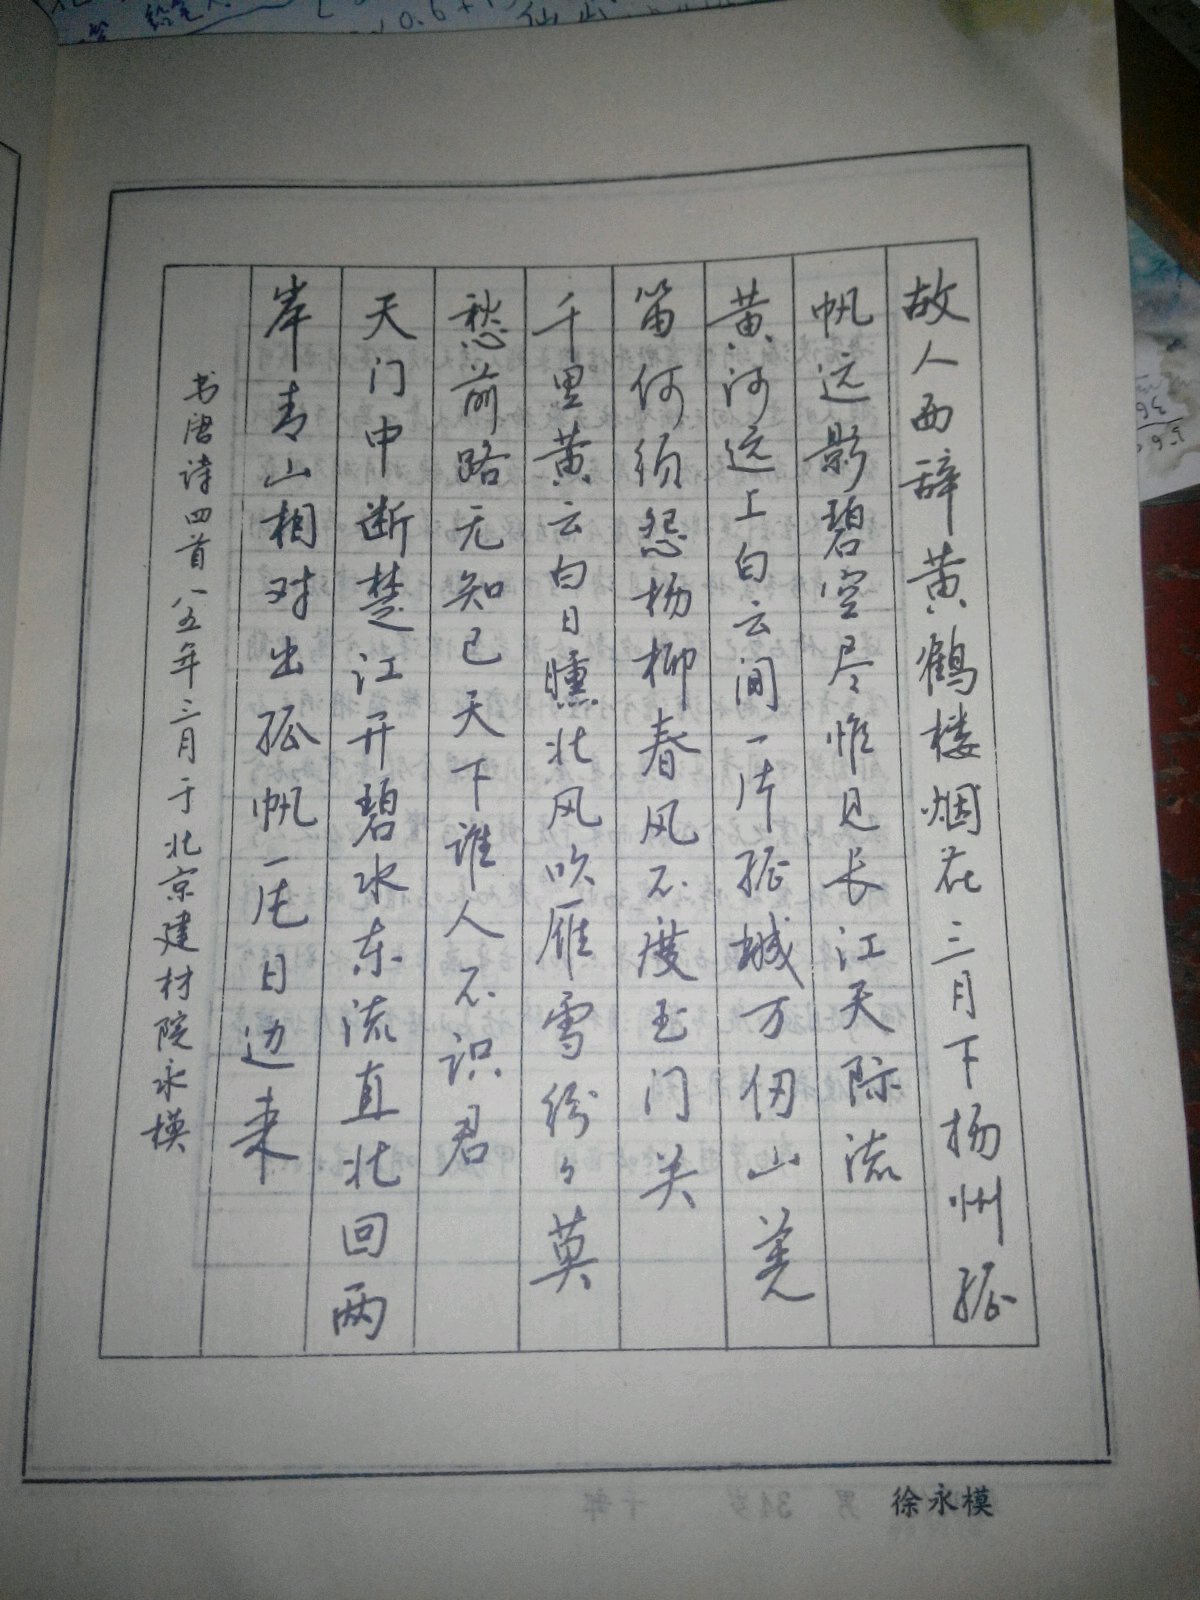 故人西辞黄鹤楼烟花三月下扬州孤
帆远影碧空尽惟见长江天际流
黄河远上白云间一片孤城万仞山羌
笛何须怨杨柳春风不度玉门关
千里黄云白日曛北风吹雁雪纷々莫
愁前路无知己天下谁人不识君
天门中断楚江开碧水东流直北回两
岸青山相对出孤帆一片日边来
书唐诗四首八五年三月于北京建材院永模
徐永模